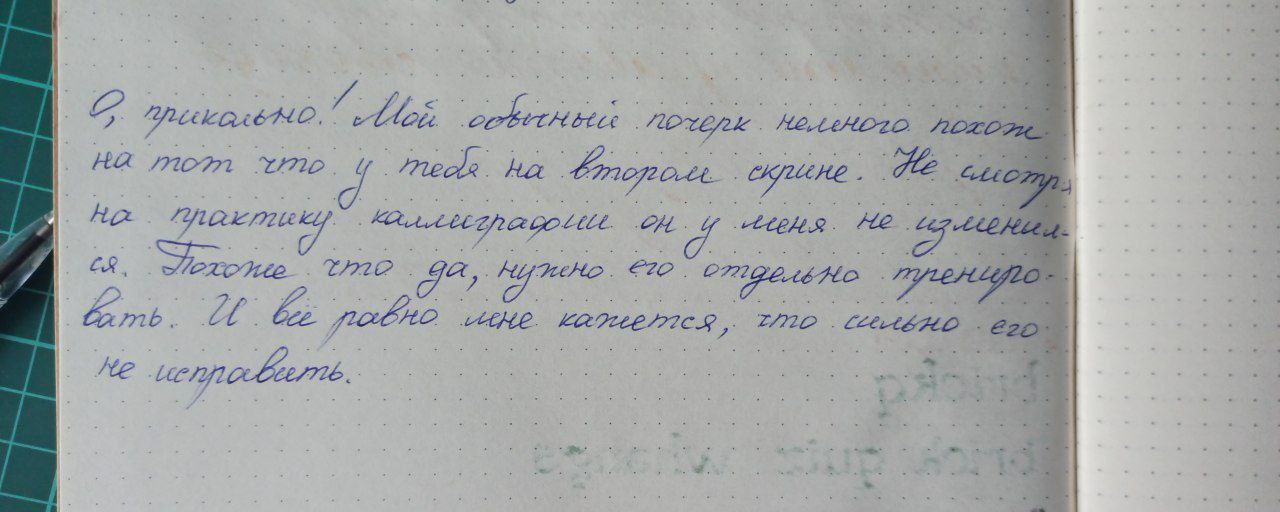 О, прикольно! Мой обычный почерк немного похож
на тот что у тебя на втором скрине. Не смотря
на практику каллиграфии он у меня не изменил-
ся. Похоже что да, нужно его отдельно трениро-
вать. И все равно мне кажется, что сильно его
не исправить.